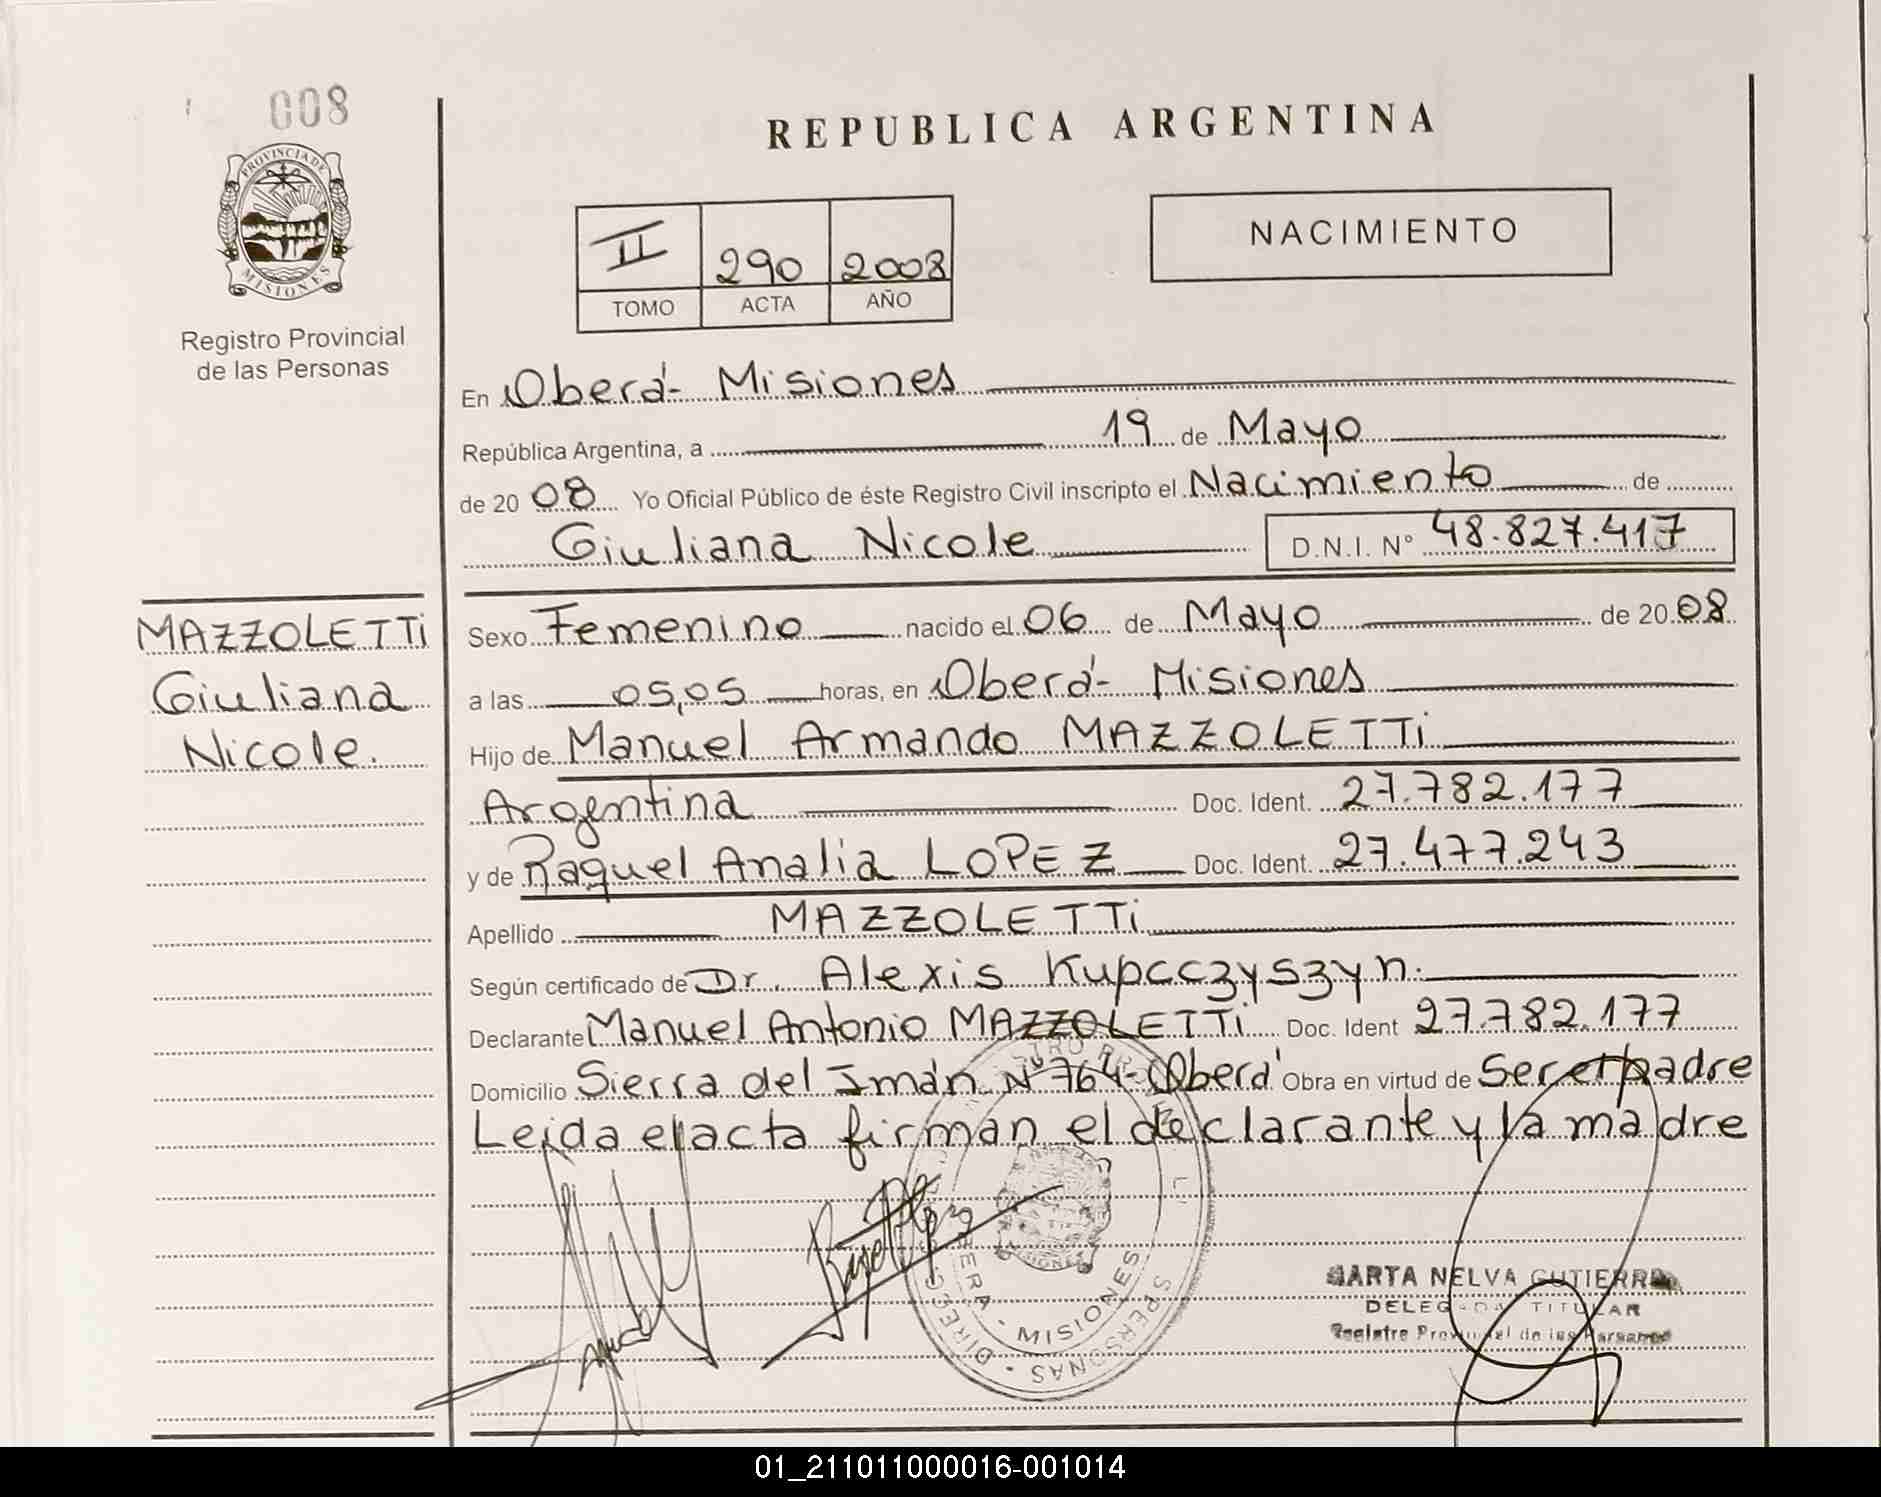 008
REPUBLICA ARGENTINA
PROVINCIA DE
MISIONES
Registro Provincial
de las Personas
II 290 2008
TOMO ACTA AÑO
NACIMIENTO
En Oberá- Misiones
República Argentina, a 19 de Mayo
de 20 08 Yo Oficial Público de éste Registro Civil inscripto el Nacimiento de
Giuliana Nicole D.N.I. N° 48.827.417
MAZZOLETTi
Giuliana
Nicole.
Sexo Femenino nacido el 06 de Mayo de 20 08
a las 05,05 horas, en Oberá- Misiones
Hijo de Manuel Armando MAZZOLETTi
Argentina Doc. Ident. 27.782.177
y de Raquel Analia LOPEZ Doc. Ident. 27.477.243
Apellido MAZZOLETTi
Según certificado de Dr. Alexis Kupcczyszyn.
Declarante Manuel Antonio MAZZOLETTi Doc. Ident 27.782.177
Domicilio Sierra del Imán N° 764- Oberá Obra en virtud de Ser el padre
Leida el acta firman el declarante y la madre
MISIONES
PERSONAS
MARTA NELVA GUTIERREZ
DELEGADA TITULAR
Registro Provincial de las Personas
01_211011000016-001014